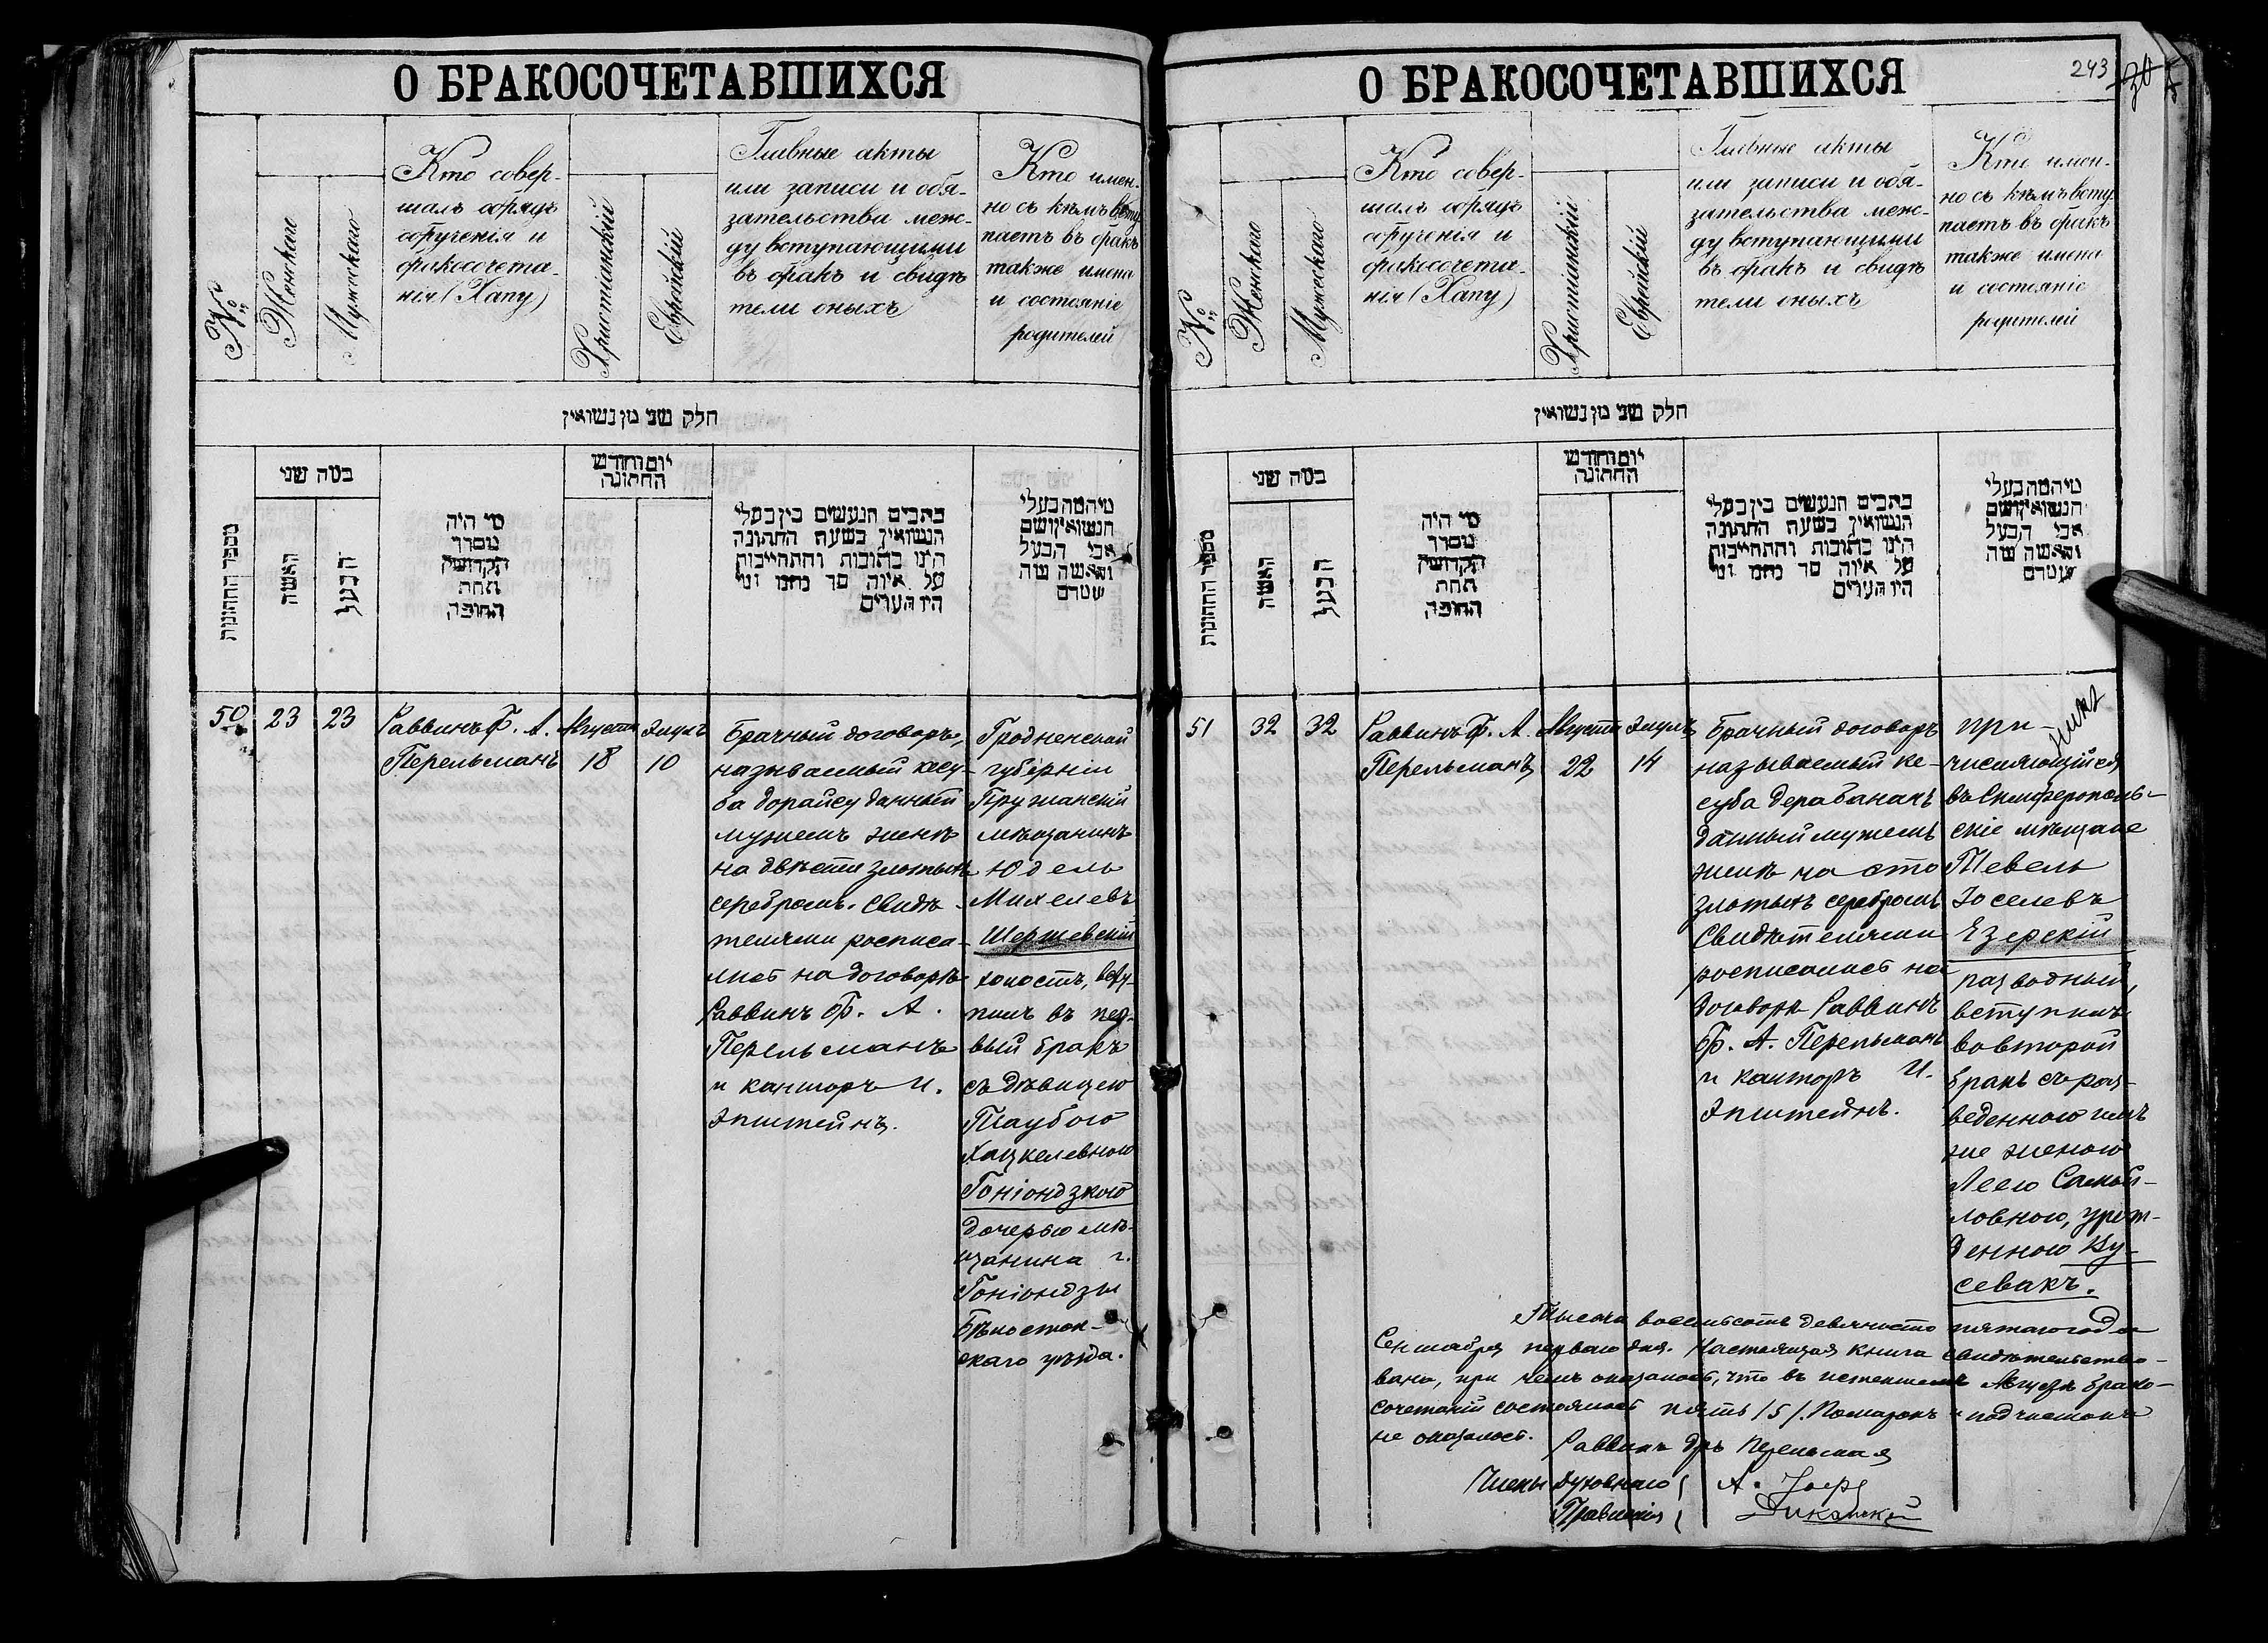 О БРАКОСОЧЕТАВШИХСЯ
№
Женскаго
Мужескаго
Кто совер-
шалъ обрядъ
обрученія и
бракосочета-
нія (Хапу)
Христіанскій
Еврейскій
Главные акты
или записи и обя-
зательства меж-
ду вступающими
въ бракъ и свидѣ
тели оныхъ
Кто имен-
но съ кѣмъ всту
паетъ въ бракъ
также имена
и состояніе
родителей
חלק שני מן נשואין
מספר החתונות
כמה שני
האשה
הבעל
מי היה
מסדר
הקדושין
תחת
החופה
יום וחודש
החתונה
כתבים הנעשים בין בעלי
הנשואין בשעת החתונה
היינו כתובות והתחייבות
על איזה סך כתבו ומי
היו העדים
מי המה בעלי
הנשואין ושם
אבי הבעל
והאשה
50
23
23
Раввинъ Ф. А.
Перельманъ
Августа
18
Элулъ
10
Брачный договоръ,
называемый кесу-
ба дорайсу данный
мужемъ женѣ
на двѣсти злотыхъ
серебромъ. Свидѣ-
телями росписа-
лись на договорѣ
Раввинъ Ф. А.
Перельманъ
и канторъ И.
Эпштейнъ.
Гродненской
губерніи
Пружанскій
мѣщанинъ
Юдель
Михелевъ
Шершевскій
холостъ, всту-
пилъ въ пер-
вый бракъ
съ дѣвицею
Таубою
Хацкелевною
Гоніондзкою
дочерью мѣ-
щанина г.
Гоніондзы
Бѣлосток-
скаго уѣзда.
О БРАКОСОЧЕТАВШИХСЯ
243
№
Женскаго
Мужескаго
Кто совер-
шалъ обрядъ
обрученія и
бракосочета-
нія (Хапу)
Христіанскій
Еврейскій
Главные акты
или записи и обя-
зательства меж-
ду вступающими
въ бракъ и свидѣ
тели оныхъ
Кто имен-
но съ кѣмъ всту-
паетъ въ бракъ
также имена
и состояніе
родителей
חלק שני מן נשואין
מספר החתונות
כמה שני
האשה
הבעל
מי היה
מסדר
הקדושין
תחת
החופה
יום וחודש
החתונה
כתבים הנעשים בין בעלי
הנשואין בשעת החתונה
היינו כתובות והתחייבות
על איזה סך כתבו ומי
היו העדים
מי המה בעלי
הנשואין ושם
אבי הבעל
והאשה
51
32
32
Раввинъ Ф. А.
Перельманъ
Августа
22
Элулъ
14
Брачный договоръ
называемый ке-
суба дерабананъ
данный мужемъ
женѣ на сто
злотыхъ серебромъ
Свидѣтелями
росписались на
договорѣ Раввинъ
Ф. А. Перельманъ
и канторъ И.
Эпштейнъ.
при-
числяющійся
въ Симферополь-
скіе мѣщане
Тевель
Іоселевъ
Езерскій
разводный,
вступилъ
во второй
бракъ съ раз-
веденною имъ
же женою
Леею Самой-
ловною, урож-
денною Ку-
севакъ.
Тысяча восемьсотъ девяносто пятаго года
Сентября перваго дня. Настоящая книга свидѣтельство-
вана, при чемъ оказалось, что въ истекшемъ Августѣ брако-
сочетаній состоялось пять /5/. Помарокъ и подчистокъ
не оказалось.
Раввинъ дръ Перельман
Члены духовнаго
Правленія
А.